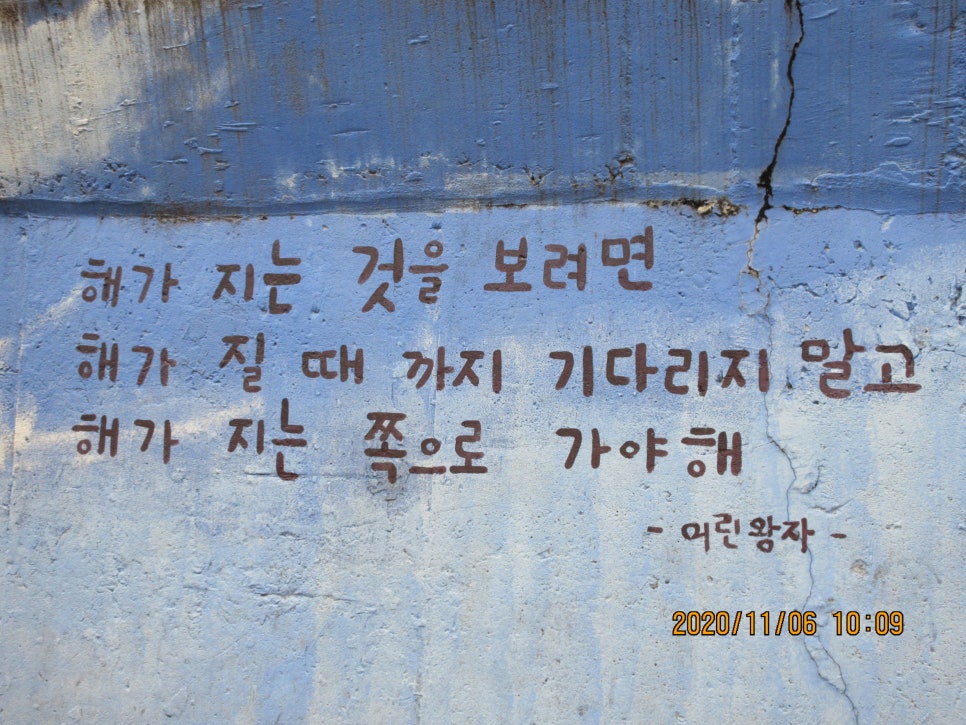 해가 지는 것을 보려면
해가 질 때 까지 기다리지 말고
해가 지는 쪽으로 가야해
- 어린왕자 -
2020/11/06 10:09